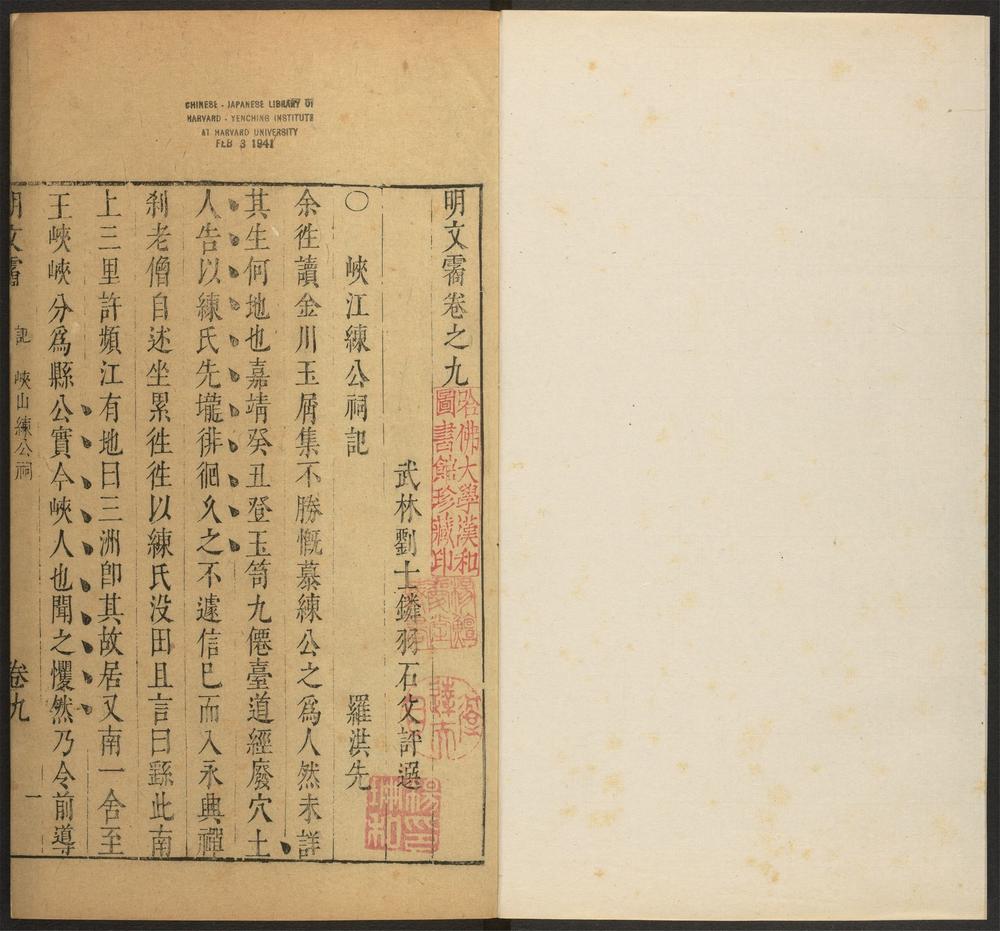 CHINESE - JAPANESE LIBRARY OF
HARVARD - YENCHING INSTITUTE
AT HARVARD UNIVERSITY
FEB 3 1941
明文霱卷之九
哈佛大學漢和
圖書館珍藏印
武林劉士鏻羽石父評選
○　峽江練公祠記　羅洪先
余徃讀金川玉屑集不勝慨慕練公之爲人然未詳
其生何地也嘉靖癸丑登玉笥九僊臺道經廢穴土
人告以練氏先壠徘徊久之不遽信巳而入永興禪
刹老僧自述坐累徃徃以練氏没田且言曰繇此南
上三里許頻江有地曰三洲卽其故居又南一舍至
王峽峽分爲縣公實今峽人也聞之懼然乃令前導
明文霱　記　峽山練公祠　卷九　一